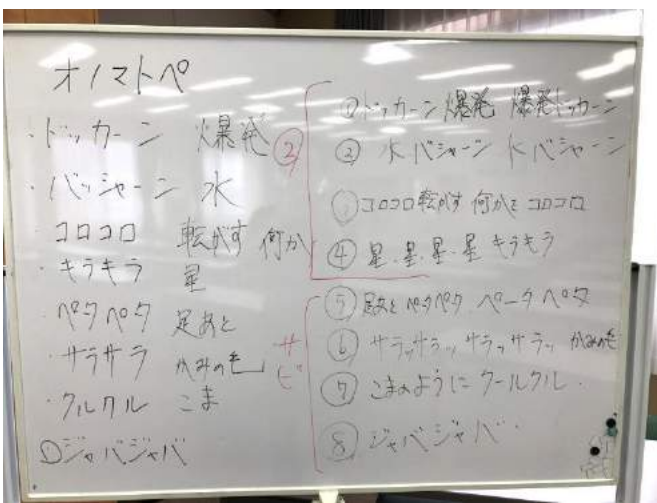 オノマトペ
・ドッカーン 爆発
・バッシャーン 水
・コロコロ 転がす 何か
・キラキラ 星
・ペタペタ 足あと
・サラサラ かみの毛
・クルクル こま
ジャバジャバ
②
① ドッカーン 爆発 爆発ドッカーン
② 水バシャーン 水バシャーン
③ コロコロ転がす 何かをコロコロ
④ 星・星・星・星 キラキラ
サビ
⑤ 足あとペタペタ ペータペタ
⑥ サラッサラッサラッサラッ かみの毛
⑦ こまのように クールクル・
⑧ ジャバジャバ・